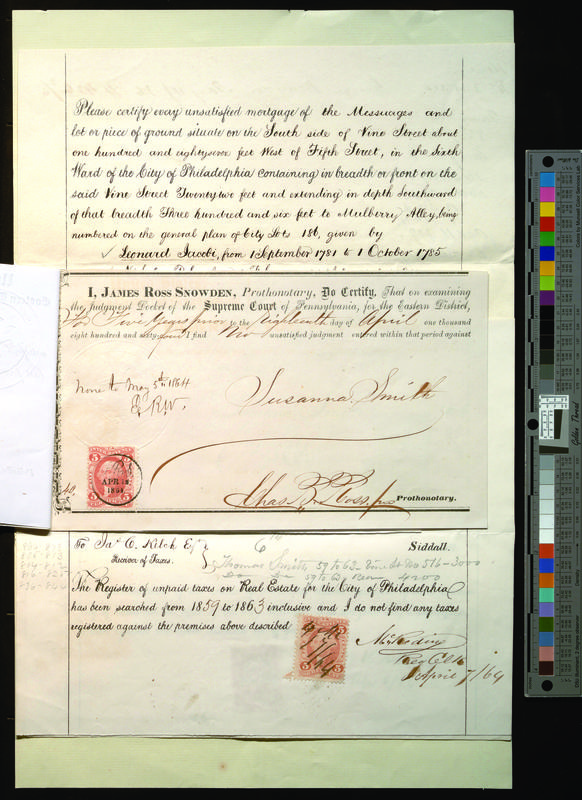 Please certify every unsatisfied mortgage of the Messuages and
lot or piece of ground situate on the South side of Vine Street about
one hundred and eightyseven feet West of Fifth Street, in the Sixth
Ward of the City of Philadelphia containing in breadth or front on the
said Vine Street Twentytwo feet and extending in depth Southward
of that breadth Three hundred and six feet to Mulberry Alley, being
numbered on the general plan of City Lots 186, given by
✓ Leonard Jacobi, from 1 September 1781 to 1 October 1785
I, JAMES ROSS SNOWDEN, Prothonotary, Do Certify, That on examining
the Judgment Docket of the Supreme Court of Pennsylvania, for the Eastern District,
For Five Years prior to the Eighteenth day of April one thousand
eight hundred and sixty-four I find No unsatisfied judgment entered within that period against
None to May 5th 1864
E.R.W.
Susanna Smith
APR 18
1864
Prothonotary.
To Jas. C. Kelch Esq
Receiver of Taxes.
6th
Siddall.
Thomas Smith 59 to 63 Vine St No 516 - 3000
The Register of unpaid taxes on Real Estate for the City of Philadelphia
has been searched from 1859 to 1863 inclusive and I do not find any taxes
registered against the premises above described
Reg Clk
April 7/64